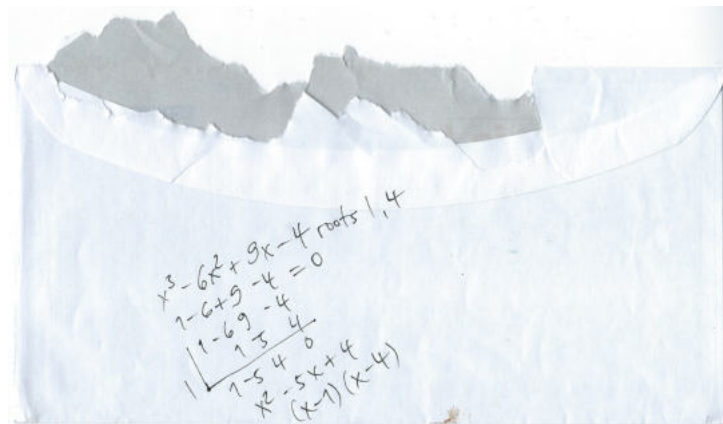 x³-6x²+9x-4 roots 1,4
1-6+9-4=0
1-6 9 -4
1-5 4
1 1-5 4 0
x²-5x+4
(x-1)(x-4)